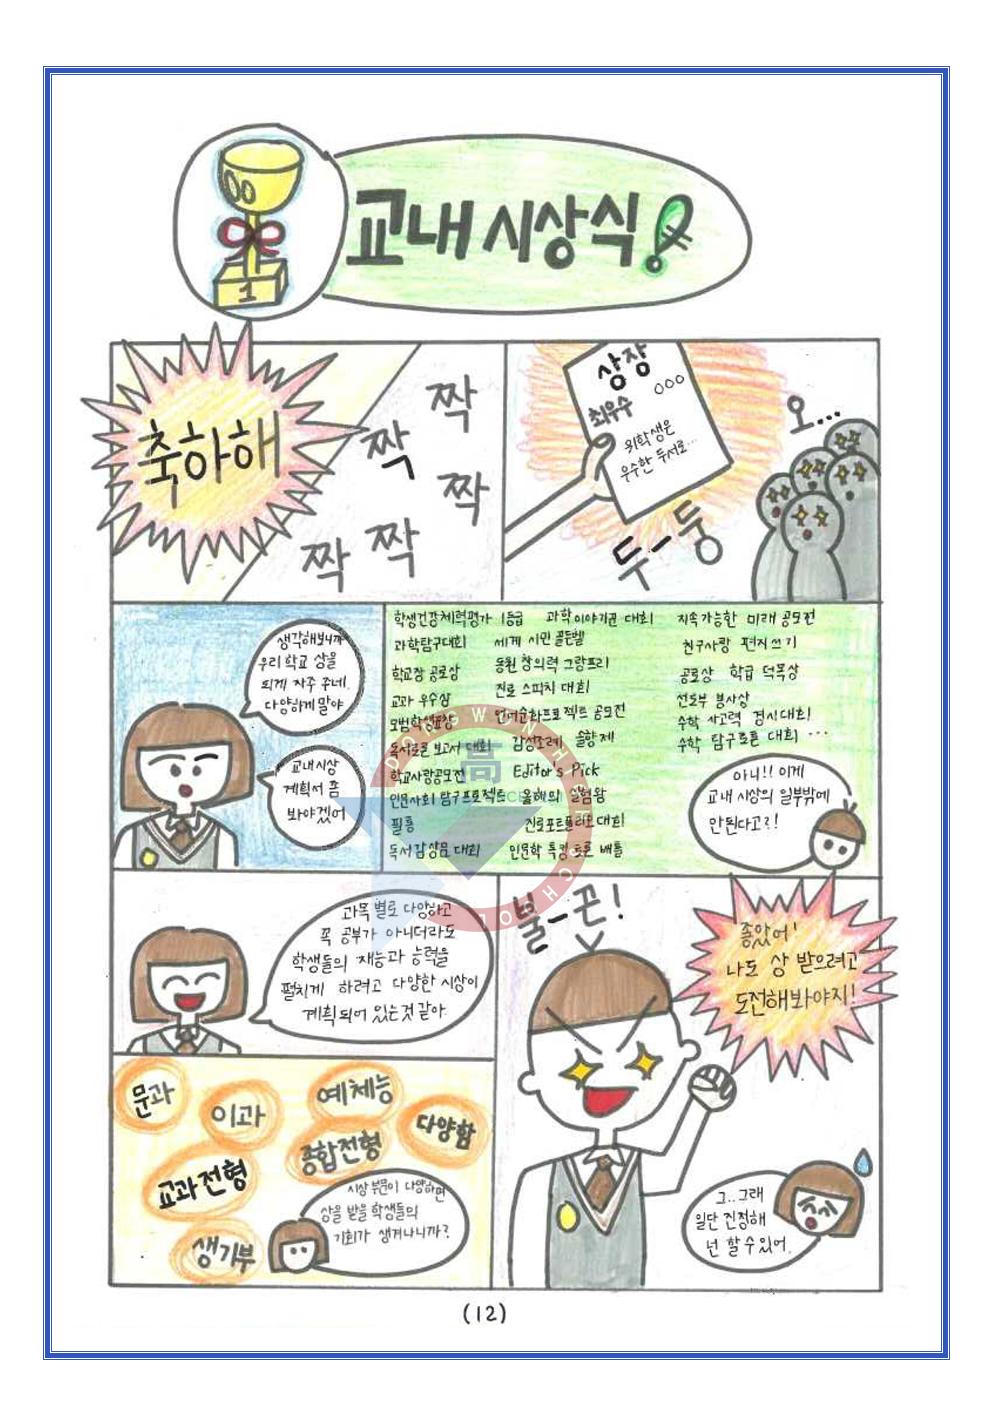 교내 시상식!
1
축하해
짝
짝
짝
짝
짝
상장
최우수 ○○○
위 학생은
우수한 두서로...
오...
두-둥
생각해보니까
우리 학교 상을
되게 자주 주네.
다양하게 말야
교내시상
계획서 좀
봐야겠어
학생건강체력평가 1등급 과학이야기권 대회 지속가능한 미래 공모전
과학탐구대회 세계 시민 골든벨 친구사랑 편지쓰기
학교장 공로상 동원 창의력 그랑프리 공로상 학급 덕목상
교과 우수상 진로 스피치 대회 선도부 봉사상
모범학생표창 언어순화프로젝트 공모전 수학 사고력 경시대회
독서토론 보고서 대회 감성초례 솔향제 수학 탐구토론 대회 ...
학교사랑공모전 Editor's Pick
인문사회 탐구프로젝트 올해의 실험왕
필통 진로포트폴리오대회
독서감상문 대회 인문학 특강 토론 배틀
아니!! 이게
교내 시상의 일부밖에
안된다고?!
과목별로 다양하고
꼭 공부가 아니더라도
학생들의 재능과 능력을
펼치게 하려고 다양한 시상이
계획되어 있는것 같아
불-끈!
좋았어!
나도 상 받으려고
도전해봐야지!
문과
이과
예체능
다양함
교과전형
종합전형
생기부
시상 부문이 다양하면
상을 받을 학생들의
기회가 생겨나니까?
그..그래
일단 진정해
넌 할 수 있어.
(12)
DONGWON HIGH SCHOOL
高